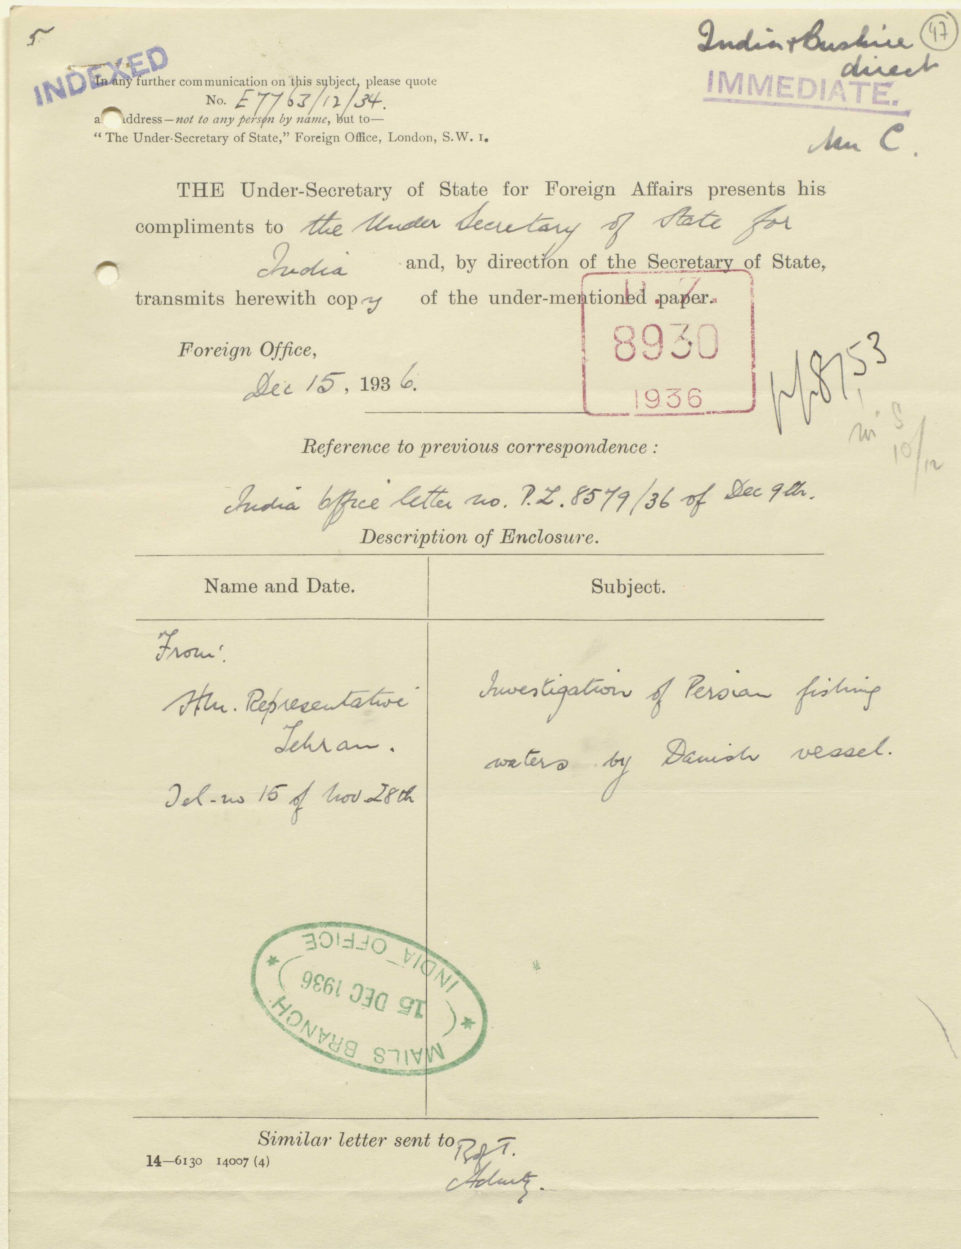 5
India & Bushire
direct
47
INDEXED
IMMEDIATE.
In any further communication on this subject, please quote
No. E7763/12/34.
address—not to any person by name, but to—
"The Under-Secretary of State," Foreign Office, London, S.W. 1.
C.
THE Under-Secretary of State for Foreign Affairs presents his
compliments to the Under Secretary of State for
India and, by direction of the Secretary of State,
transmits herewith copy of the under-mentioned paper.
P.Z.
8930
1936
Foreign Office,
Dec 15, 1936.
8753
10/12
Reference to previous correspondence:
India Office letter no. P.Z. 8579/36 of Dec 9th.
Description of Enclosure.
Name and Date.
Subject.
From:
H.M. Representative
Tehran.
Tel. no 15 of Nov 28th
Investigation of Persian fishing
waters by Danish vessel.
INDIA OFFICE
15 DEC 1936
MAILS BRANCH
Similar letter sent to B of T.
Admty.
14—6130 14007 (4)